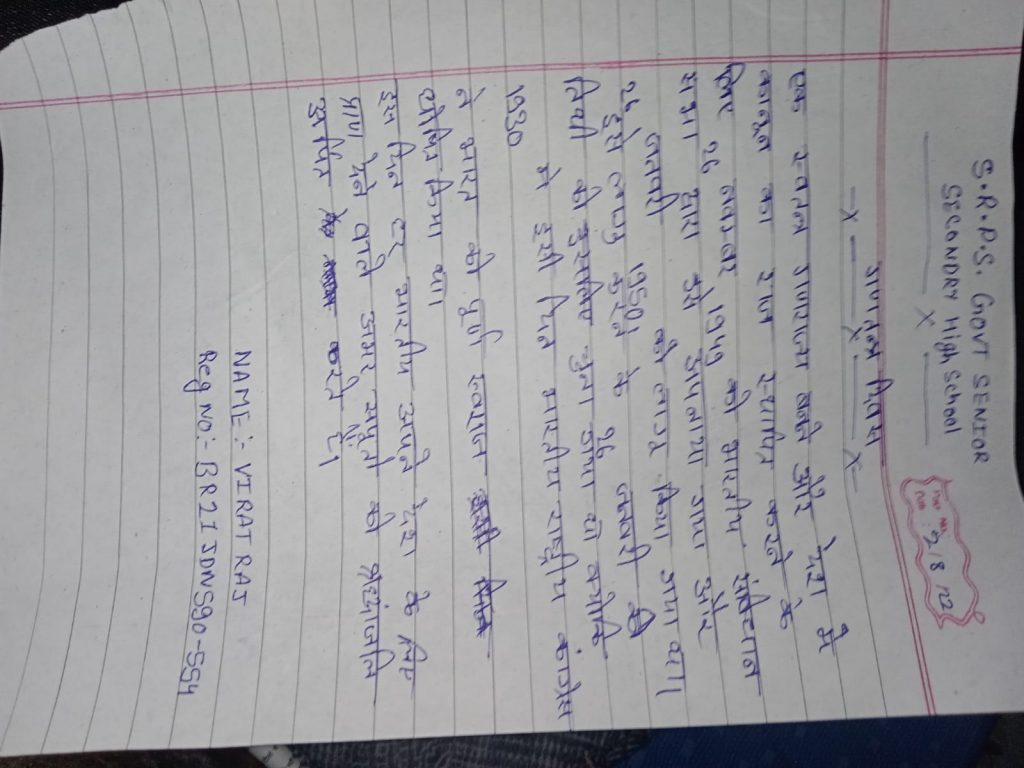 S.R.P.S. GOVT SENIOR
SECONDRY High School
5/8/22
गणतंत्र दिवस
एक स्वतन्त्र गणराज्य बनने और देश में
कानून का राज स्थापित करने के
लिए 26 नवम्बर 1949 को भारतीय संविधान
सभा द्वारा इसे अपनाया गया और
26 जनवरी 1950 को लागू किया गया था।
इसे लागु करने के 26 जनवरी की
तिथी को इसलिए चुना गया था क्योंकि
1930 मे इसी दिन भारतीय राष्ट्रीय कांग्रेस
ने भारत को पूर्ण स्वराज
घोषित किया था।
इस दिन हर भारतीय अपने देश के लिए
प्राण देने वाले अमर सपुतो को श्रद्धांजलि
अर्पित करते है।
NAME :- VIRAT RAJ
Reg NO:- BR21JDN590-554